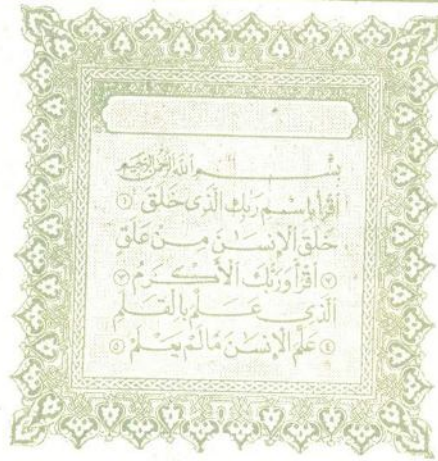 بسم الله الرحمن الرحيم
ٱقْرَأْ بِٱسْمِ رَبِّكَ ٱلَّذِى خَلَقَ ۝١
خَلَقَ ٱلْإِنسَٰنَ مِنْ عَلَقٍ
۝٢ ٱقْرَأْ وَرَبُّكَ ٱلْأَكْرَمُ ۝٣
ٱلَّذِى عَلَّمَ بِٱلْقَلَمِ
۝٤ عَلَّمَ ٱلْإِنسَٰنَ مَا لَمْ يَعْلَمْ ۝٥